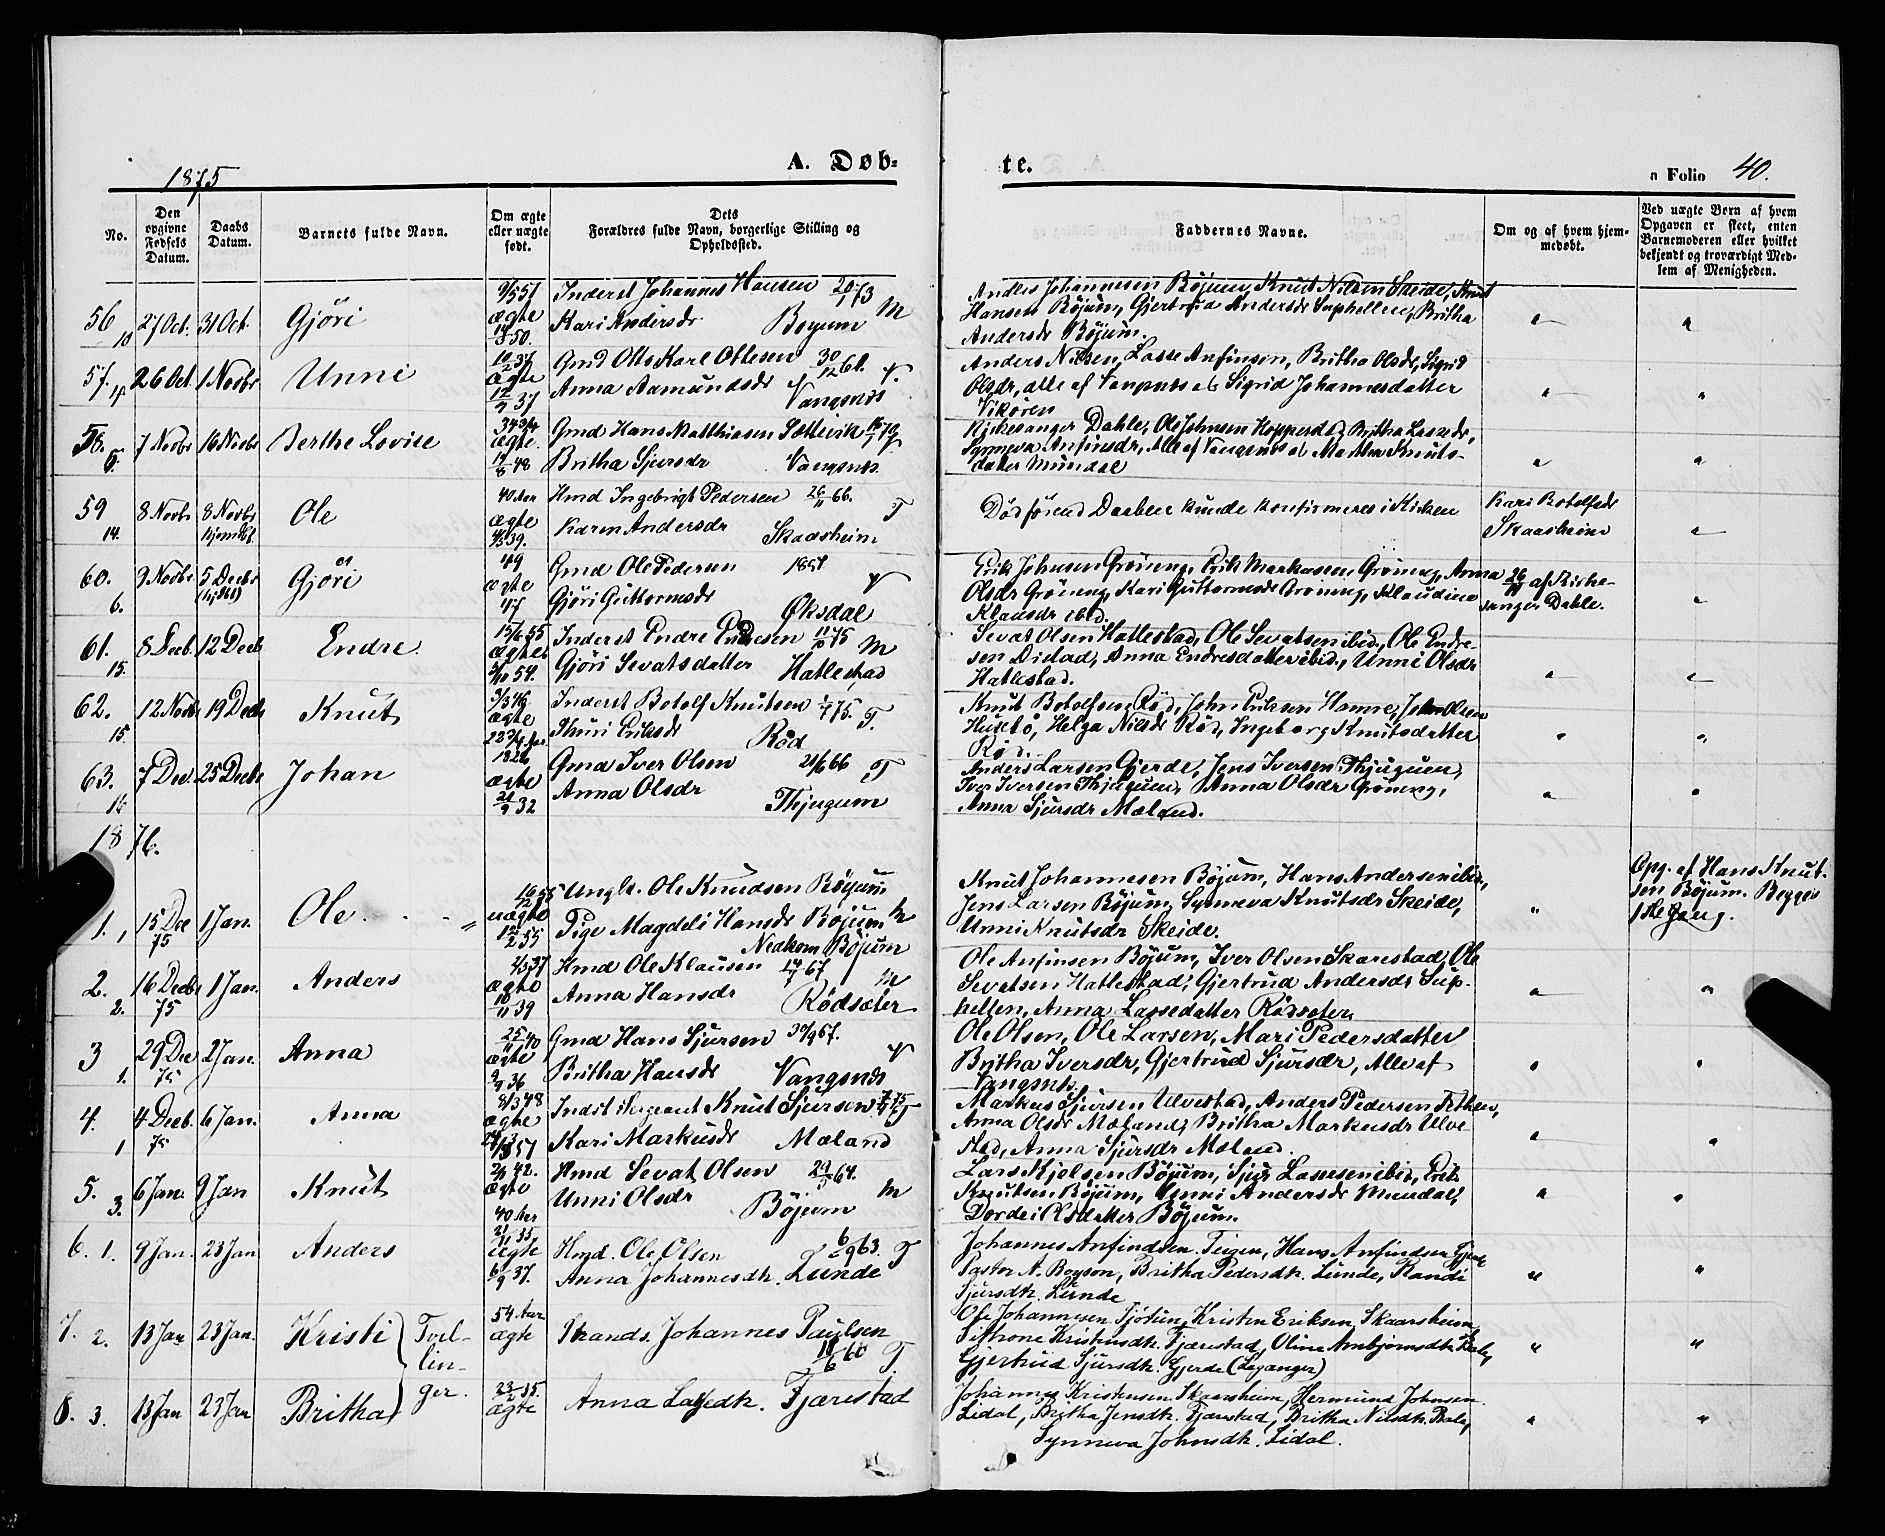 1875
A. Døb-
te.
n Folio 40.
No.
Den opgivne Fødsels Datum.
Daabs Datum.
Barnets fulde Navn.
Om ægte eller uægte født.
Dets Forældres fulde Navn, borgerlige Stilling og Opholdssted.
Faddernes Navne.
Om og af hvem hjemmedøbt.
Ved uægte Børn af hvem Opgaven er skeet, enten Barnemoderen eller hvilket bekjendt og troværdigt Medlem af Menigheden.
56 10 27 Oct. 31 Oct. Gjöri ægte
Inderst Johannes Hansen 20/1 73
Kari Andersdr Bøyum M
Anders Johannesen Böjum, Knut Nilsen Skeide, Knut
Hansen Böjum, Gjertrud Andersdr Suphellen, Britha
Andersdr Böjum.
57. 26 Oct. 1 Novbr Unni ægte
Gmd Otto Karl Ottesen 30/12 61. V.
Anna Aamundsdr Vangsnes
Anders Nilsen, Lasse Anfinsen, Britha Olsdr, Sigrid
Olsdr, alle af Vangsnes og Sigrid Johannesdatter
Vikören
58. 7 Novbr 16 Novbr Berthe Lovise ægte 14/8 48
Gmd Hans Matthiasen
Britha Sjursdr Vangsnes
Kirkesanger Dahle, Ole Johnsen Hopperstad, Britha Lassedr,
Synneva Anfinsdr, Alle af Vangsnes og Martha Knuts-
datter Mundal
59 14. 8 Novbr 8 Novbr Ole 40 Aar ægte
Hmd Ingebrigt Pedersen 26/11 66. T
Karen Andersdr Skaasheim
Död förend Daaben kunde konfirmeres i Kirken
Kari Botolfsdr
Skaasheim
60. 6. 9 Novbr 5 Decbr Gjöri 49 ægte 47
Gmd Ole Pedersen 1857 V
Gjöri Guttormsdr Øksdal
Erik Johnsen Gröneng, Erik Markusen Gröneng, Anna
Olsdr Gröneng, Kari Guttormsdr Gröneng, Klaudine
Klausdr ibid.
26/11 af Kirke-
sanger Dahle.
61. 15. 8 Decb. 12 Decb Endre 15/6 55 ægte
Inderst Endre Endresen 11/10 75 M
Gjöri Sevatsdatter Hatlestad
Sevat Olsen Hatlestad, Ole Sevatsen ibid, Ole Endre-
sen Distad, Anna Endresdatter ibid, Unni Olsdr
Hatlestad.
62. 15. 12 Novbr 19 Decbr Knut ægte
Inderst Botolf Knutsen 1/7 75. T.
Thuri Eriksdr Röd
Knut Botolfsen Röd, John Eriksen Hamre, John Olsen
Husebö, Helga Nilsdr Röd, Ingeborg Knutsdatter
Röd.
63. 16 7 Dec. 25 Decbr Johan 1826 ægte 32
Gmd Iver Olsen 21/6 66 T
Anna Olsdr Thjugum
Anders Larsen Gjerde, Jens Iversen Thjugum,
Iver Iversen Thjugum, Anna Olsdr Gröneng,
Anna Sjursdr Mæland.
1876.
1. 1 15 Dec 75 1 Jan. Ole uægte
Ungkr. Ole Knudsen Böyum
Pige Magdeli Hansdr Böjum M
Nedkom Böjum
Knut Johannesen Böjum, Hans Andersen ibid,
Jens Larsen Böjum, Synneva Knutsdr Skeide,
Unni Knutsdr Skeide.
Opg. af Hans Knut-
sen Böjum. Begges
1ste Gang.
2. 2. 16 Decbr 75 1 Jan. Anders ægte
Hmd Ole Klausen 67 M
Anna Hansdr Rödseter
Ole Anfinsen Böjum, Iver Olsen Skarestad, Ole
Sevatsen Hatlestad, Gjertrud Andersdr Sup-
hellen, Anna Lassedatter Rödseter
3 1. 29 Dec 75 2 Jan. Anna ægte
Gmd Hans Sjursen 30/9 67. V
Britha Hansdr Vangsnes
Ole Olsen, Ole Larsen, Mari Pedersdatter
Britha Iversdr, Gjertrud Sjursdr, Alle af
Vangsnes.
4. 1 4 Decb. 75 6 Jan. Anna 8/3 48 ægte
Indst Sergeant Knut Sjursen T
Kari Markusdr Mæland
Markus Sjursen Ulvestad, Anders Pedersen Fethen,
Anna Olsdr Mæland, Britha Markusdr Ulve
stad, Anna Sjursdr Mæland.
5. 3. 6 Jan. 9 Jan Knut ægte 40 Aar
Hmd Sevat Olsen 64. M
Unni Olsdr Böjum
Lars Kjelsen Böjum, Sjur Lassesen ibid, Erik
Knutsen Böjum, Unni Andersdr Mundal,
Dordei Olsdatter Böjum.
6. 1. 9 Jan. 23 Jan Anders 21/11 35 ægte 6/9 37.
Hmd. Ole Olsen 6/9 63. T
Anna Johannesdtr. Lunde
Johannes Anfindsen Teigen, Hans Anfindsen
Pastor A. Boyson, Britha Pedersdtr. Lunde, Randi
Sjursdtr. Lunde
7. 2. 13 Jan 23 Jan. Kristi 54 Aar ægte
Tvil-
lin-
ger.
Strands. Johannes Paulsen
18/6 60 T.
Ole Johannesen Sjötun, Kristen Eriksen Skaarsheim,
Kristensdtr. Fjærestad, Oline Arnbjørnsdtr. Bale,
Gjertrud Sjursdtr. Gjerde (Leganger)
8. 3. 13 Jan 23 Jan Britha 23/2 35. ægte
Anna Lassedtr. Fjærestad
Johannes Kristensen Skaarsheim, Hermund Johnsen
Lidal, Britha Jensdtr. Fjærestad, Britha Nilsdtr. Bale,
Synneva Johnsdtr. Lidal.